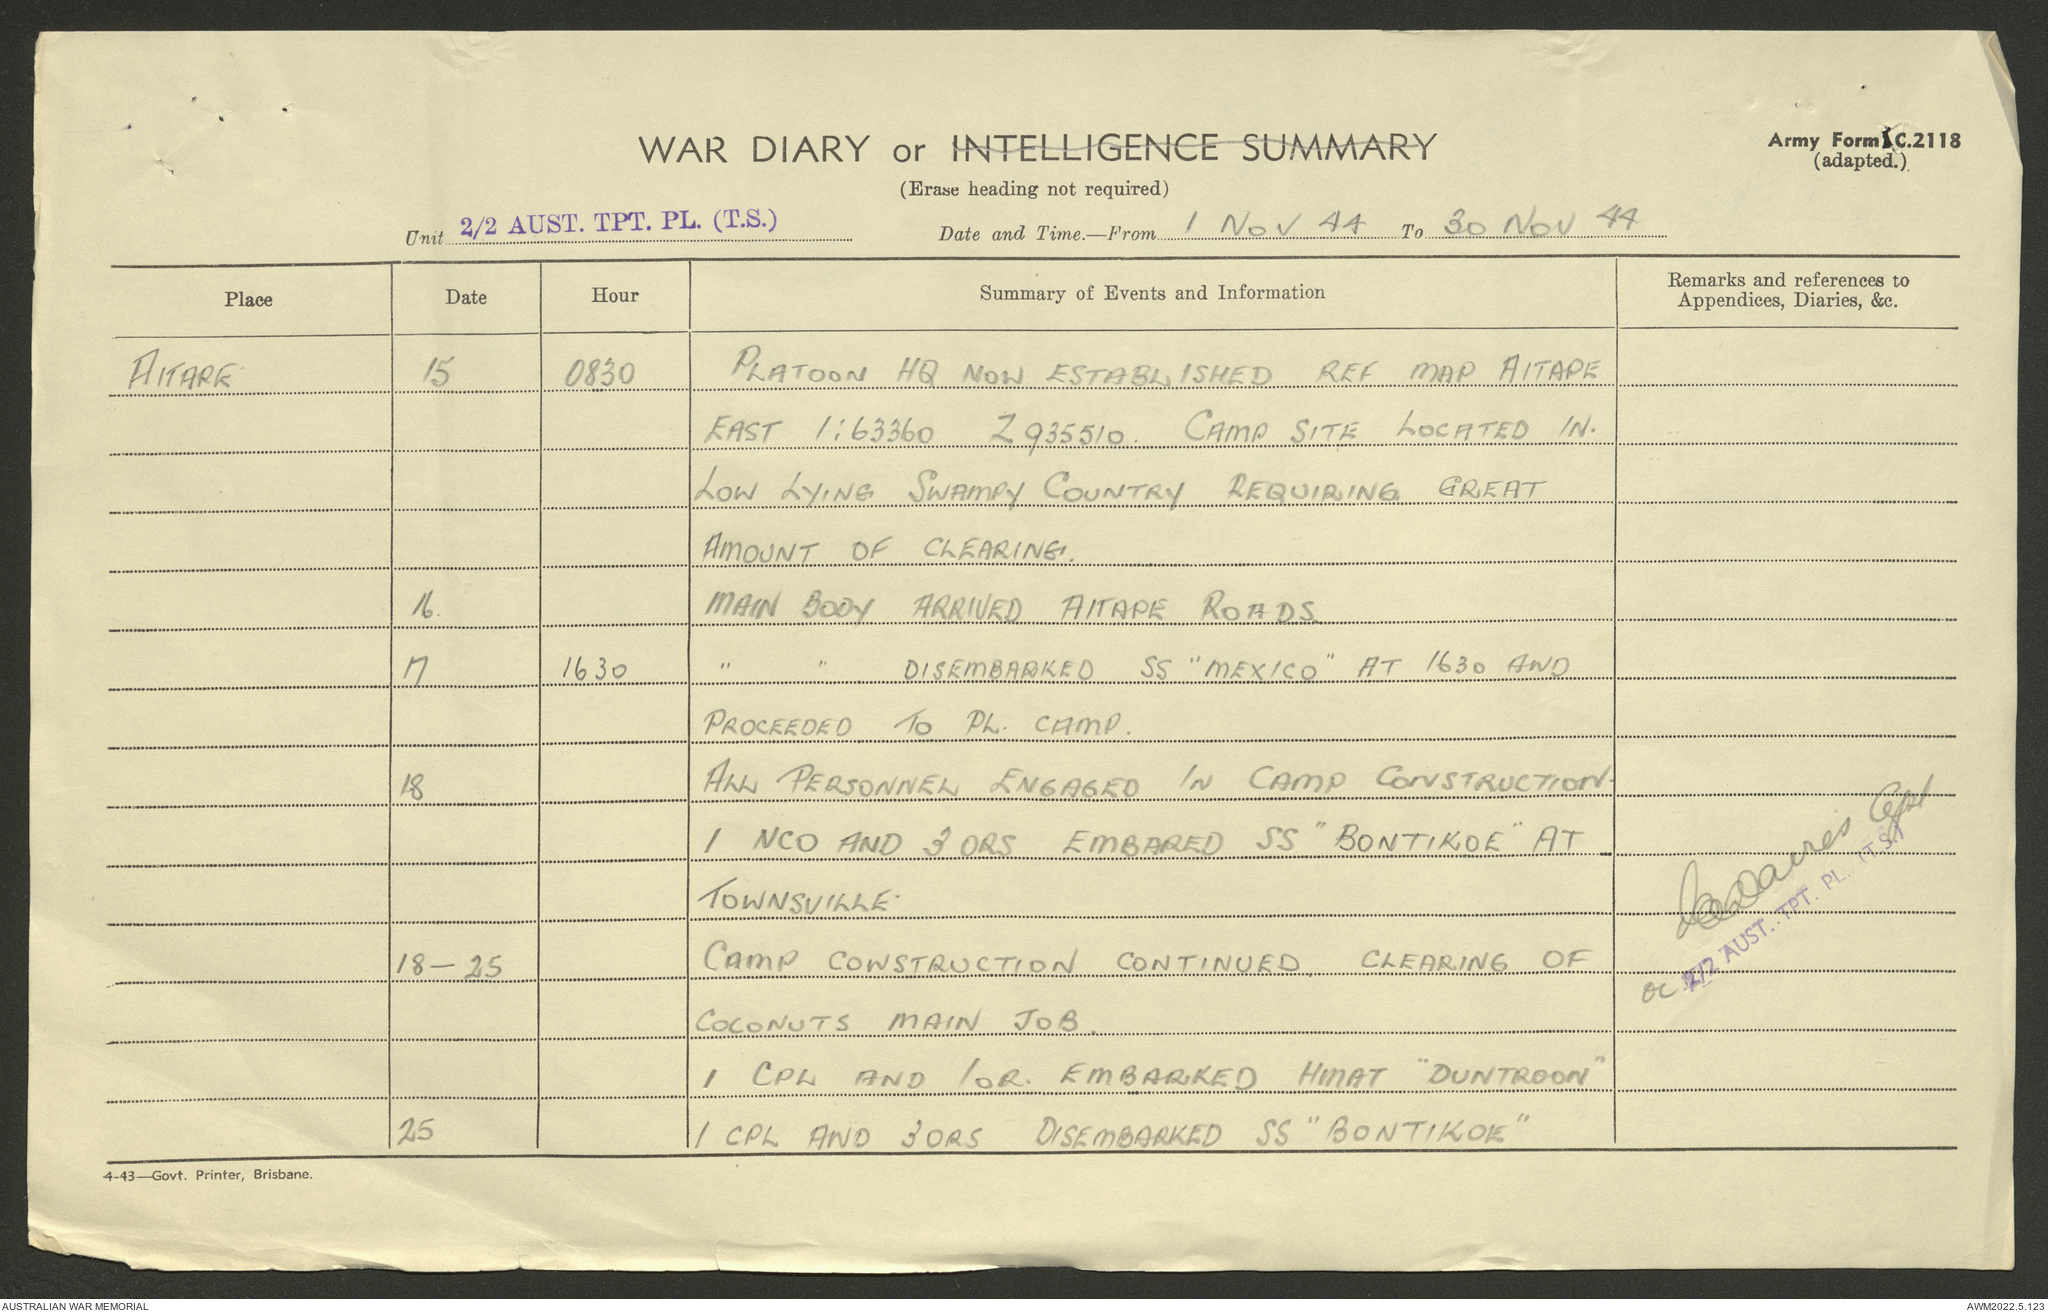 WAR DIARY or INTELLIGENCE SUMMARY
Army Form C.2118
(adapted.)
(Erase heading not required)
Unit 2/2 AUST. TPT. PL. (T.S.)
Date and Time.—From 1 NOV 44 To 30 NOV 44
Place Date Hour Summary of Events and Information Remarks and references to Appendices, Diaries, &c.
AITAPE 15 0830 PLATOON HQ NOW ESTABLISHED REF MAP AITAPE
EAST 1:63360 Z935510. CAMP SITE LOCATED IN
LOW LYING SWAMPY COUNTRY REQUIRING GREAT
AMOUNT OF CLEARING.
16. MAIN BODY ARRIVED AITAPE ROADS
17 1630 " " DISEMBARKED SS "MEXICO" AT 1630 AND
PROCEEDED TO PL. CAMP.
18 ALL PERSONNEL ENGAGED IN CAMP CONSTRUCTION
1 NCO AND 3 ORS EMBARED SS "BONTIKOE" AT
TOWNSVILLE.
18-25 CAMP CONSTRUCTION CONTINUED. CLEARING OF
COCONUTS MAIN JOB.
1 CPL AND 1 OR. EMBARKED HMAT "DUNTROON"
25 1 CPL AND 3 ORS DISEMBARKED SS "BONTIKOE"
Capt
OC 2/2 AUST. TPT. PL. (T.S.)
4-43—Govt. Printer, Brisbane.
AUSTRALIAN WAR MEMORIAL
AWM2022.5.123